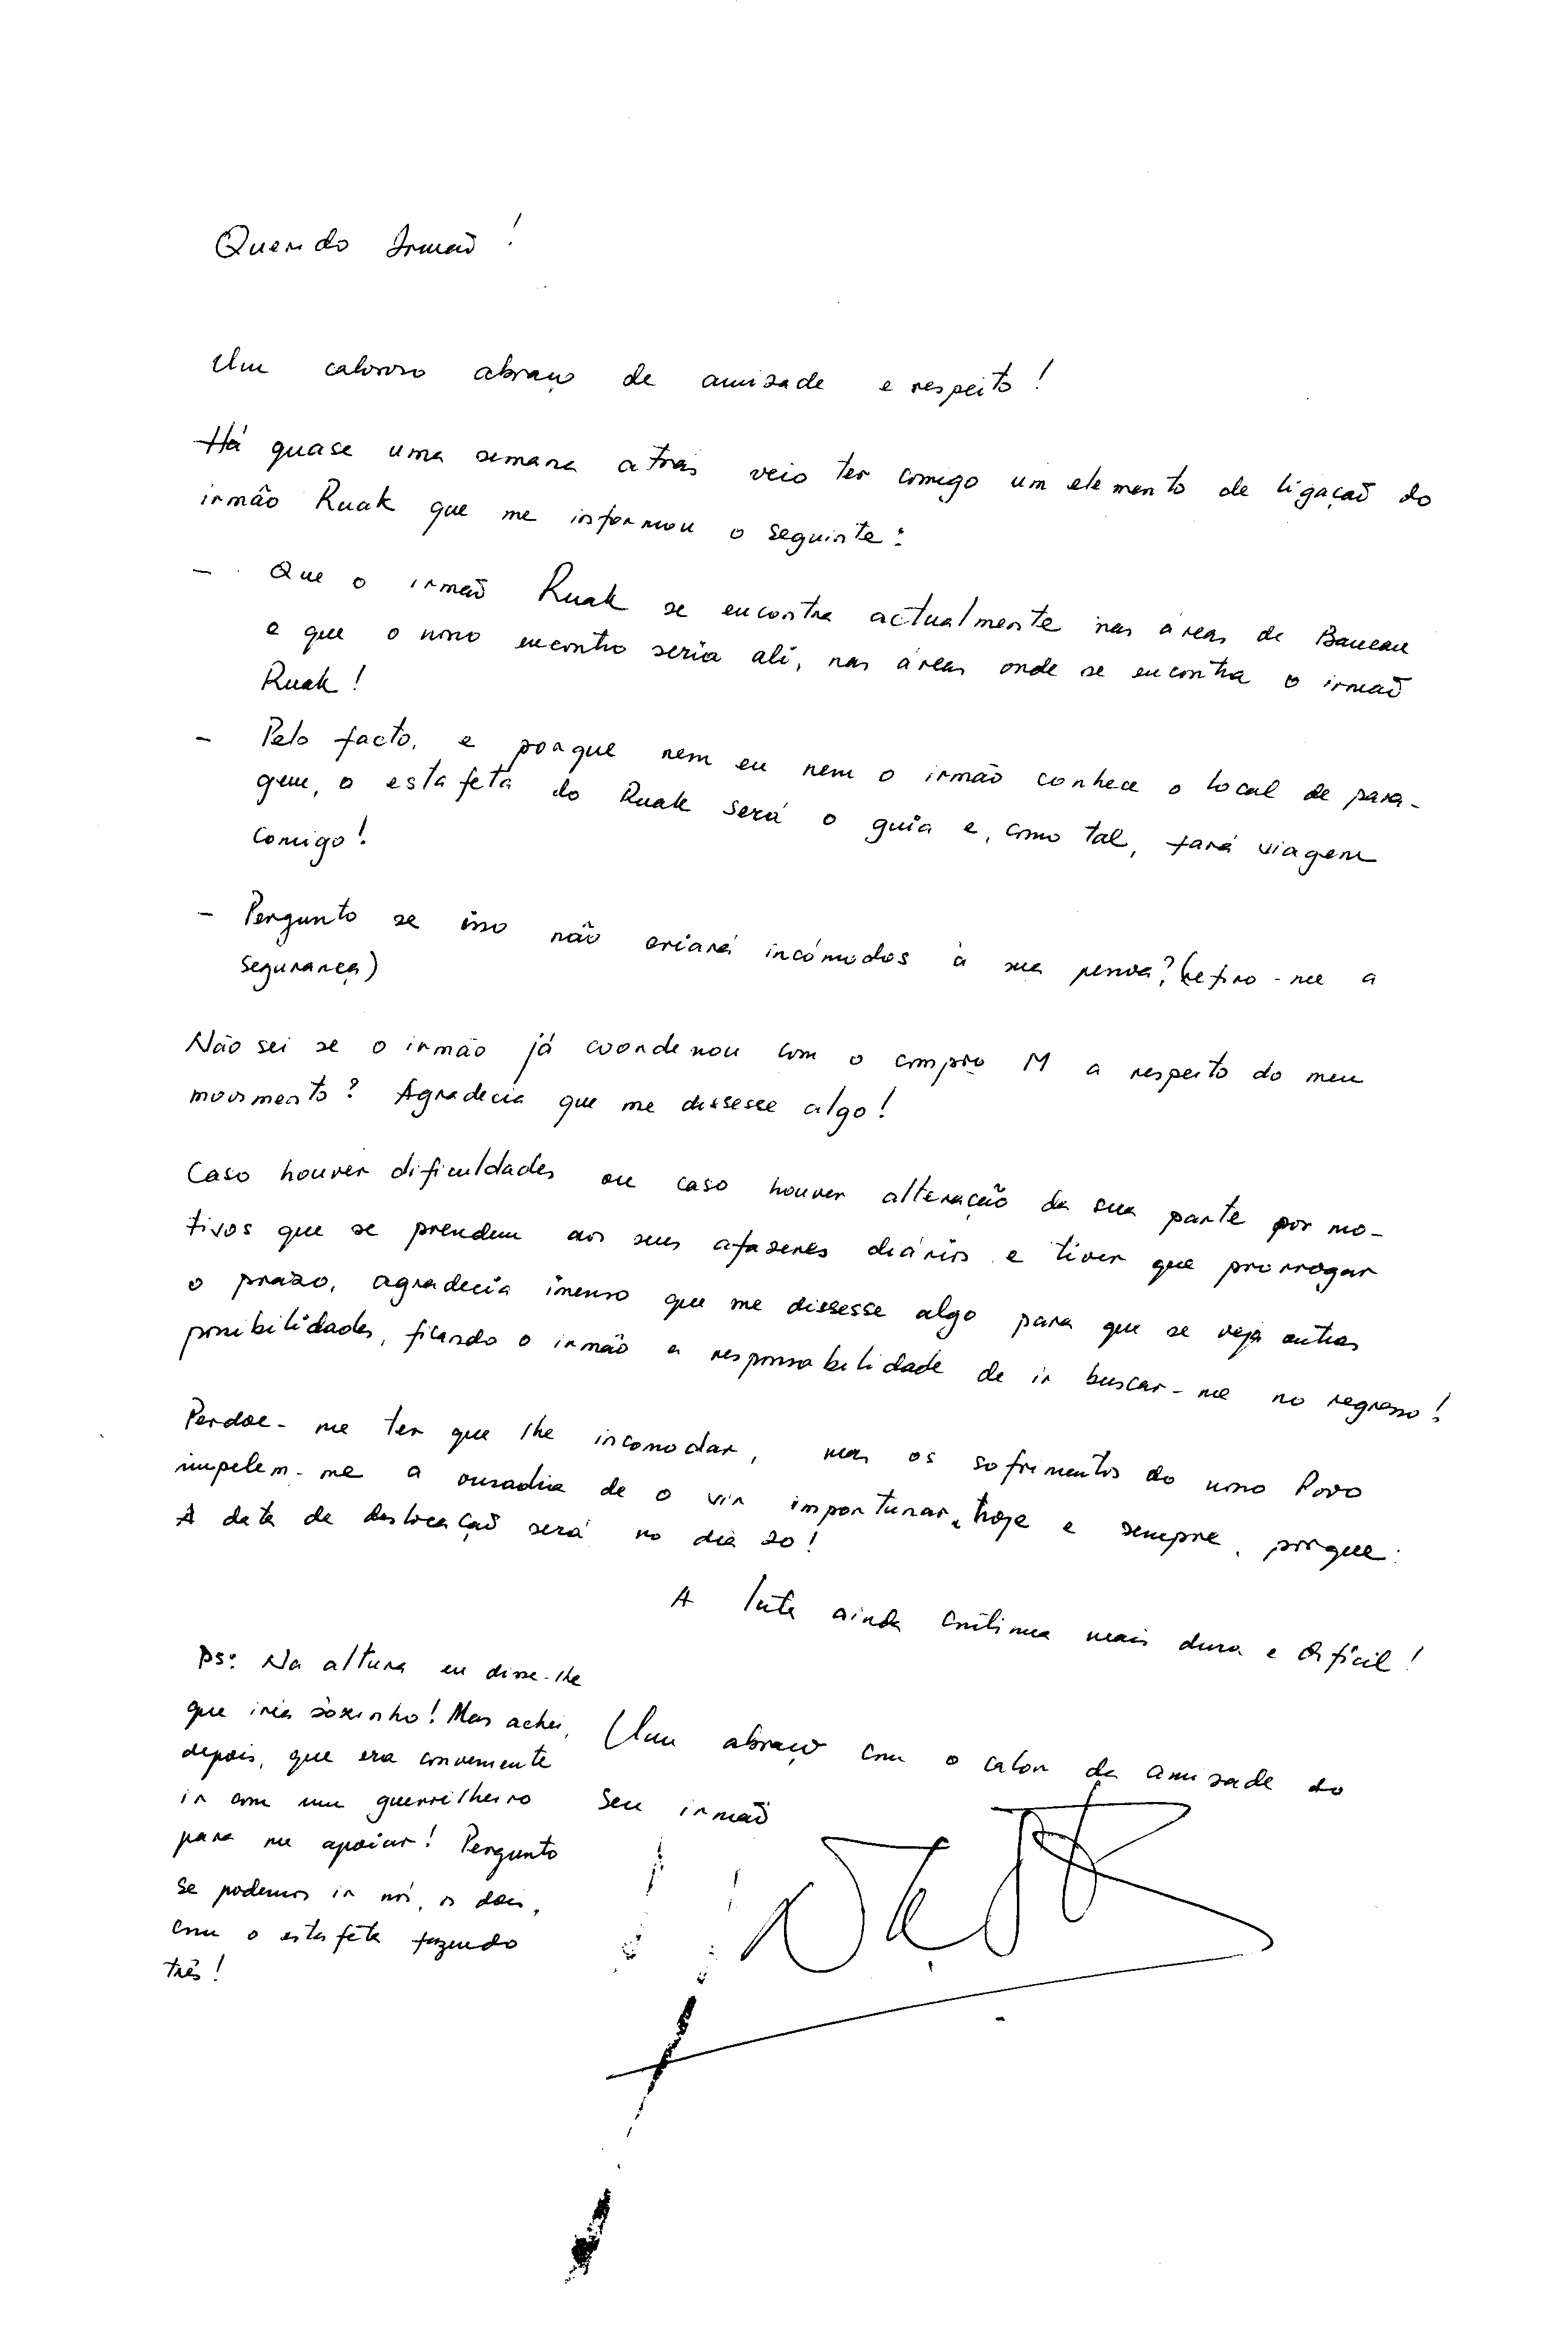 Querido Irmão !
Um caloroso abraço de amizade e respeito !
Há quase uma semana atrás veio ter comigo um elemento de ligação do
irmão Ruak que me informou o seguinte :
- Que o irmão Ruak se encontra actualmente nas áreas de Baucau
e que o nosso encontro seria ali, nas áreas onde se encontra o irmão
Ruak !
- Pelo facto, e porque nem eu nem o irmão conhece o local de para-
gem, o estafeta do Ruak será o guia e, como tal, fará viagem
comigo !
- Pergunto se isso não criará incómodos à sua pessoa ? (refiro-me a
segurança)
Não sei se o irmão já coordenou com o compro M a respeito do meu
movimento ? Agradecia que me dissesse algo !
Caso houver dificuldades ou caso houver alteração da sua parte por mo-
tivos que se prendem aos seus afazeres diários e tiver que prorrogar
o prazo, agradecia imenso que me dissesse algo para que se veja outras
possibilidades, ficando o irmão a responsabilidade de ir buscar-me no regresso !
Perdoe-me ter que lhe incomodar, mas os sofrimentos do nosso Povo
impelem-me a ousadia de o vir importunar, hoje e sempre, porque :
A data de deslocação será no dia 20 !
A luta ainda continua mais dura e difícil !
Ps: Na altura eu disse-lhe
que iria sòzinho ! Mas achei,
depois, que era conveniente
ir com um guerrilheiro
para me apoiar ! Pergunto
se podemos ir nós, os dois,
com o estafeta fazendo
três !
Um abraço com o calor da amizade do
Seu irmão